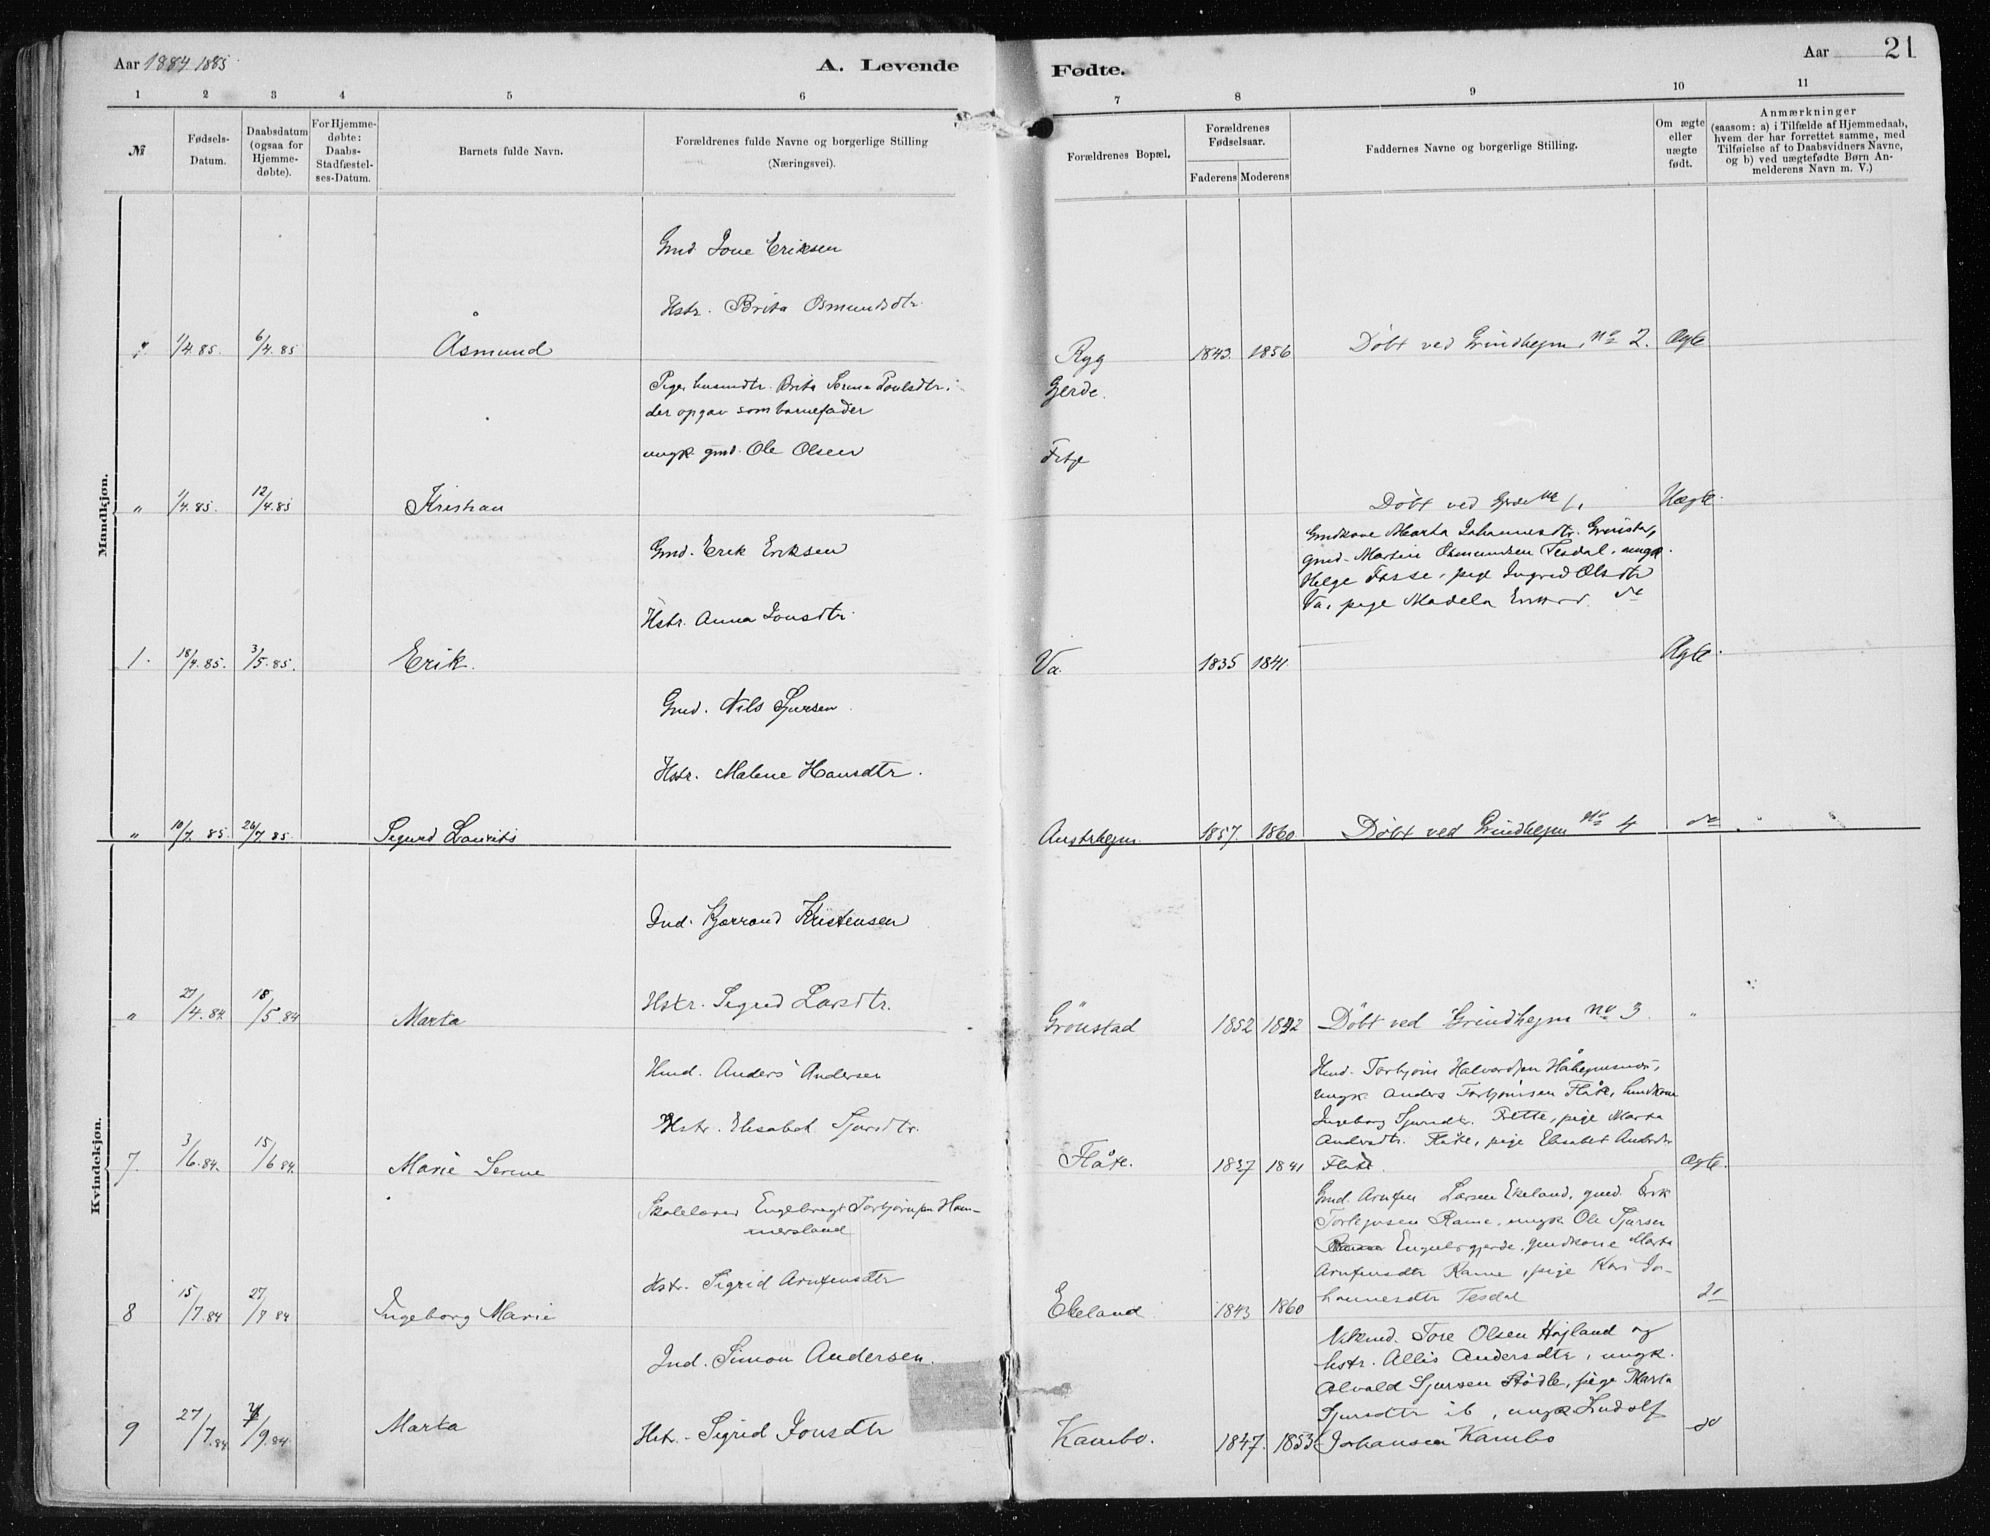 Aar 1884. 1885
A. Levende
Fødte.
Aar
21
1 2 3 4 5 6 7 8 9 10 11
№
Fødsels-
Datum.
Daabsdatum
(ogsaa for
Hjemme-
døbte).
For Hjemme-
døbte:
Daabs-
Stadfæstel-
ses-Datum.
Barnets fulde Navn.
Forældrenes fulde Navne og borgerlige Stilling
(Næringsvei).
Forældrenes Bopæl.
Forældrenes
Fødselsaar.
Faderens Moderens
Faddernes Navne og borgerlige Stilling.
Om ægte
eller
uægte
født.
Anmærkninger
(saasom: a) i Tilfælde af Hjemmedaab,
hvem der har forrettet samme, med
Tilføielse af to Daabsvidners Navne,
og b) ved uægtefødte Børn An-
melderens Navn m. V.)
Mandkjøn.
Gmd Jone Eriksen
Hstr. Brita Osmundsdtr.
1/4.85. 6/4.85 Åsmund Ryg 1843. 1856 Døbt ved Grindhejm, No 2. Ægte
Pige, husmdtr. Brita Serina Poulsdtr.
der opgav som barnefader
Gjerde.
ungk. gmd. Ole Olsen
Fitje
" 1/4.85. 12/4.85 Kristian Døbt ved Gjerde No 1. Uægte.
Gmd. Erik Eriksen
Hstr. Anna Jonsdtr.
Gmdkone Marta Johannesdtr.
gmd. Martin Osmundsen Tesdal, ungk.
Helge Fosse, pige Ingrid Olsdtr
Va, pige Madela do
1. 18/4.85. 3/5.85. Erik. Va. 1835 1841 Ægte.
Gmd. Nils Sjursen.
Hstr. Malene Hansdtr.
" 10/7.85. 26/7.85 Sigurd Laurits Austrhejm 1857. 1860 Døbt ved Grindhejm No 4 do
Kvindekjøn.
Ind. Gjerrand Kristensen
Hstr. Sigrid Larsdtr.
" 27/4.84. 18/5.84 Marta Grønstad 1852 Døbt ved Grindhejm No 3. "
Hmd. Anders Andersen
Hstr. Elisabet Sjursdtr.
Hmd. Torbjørn Halvordsen
ungk Anders Torbjørnsen Flåte, hmdkone
Ingeborg Sjursdtr. pige Marta
Andersdtr. Flåte, pige Elisabet Andersdtr
7. 3/6.84. 15/6.84 Marie Serine Flåte. 1837 1841 Flåte. Ægte.
Skolelærer Engebregt Torbjørnsen Ham-
mersland
Hstr. Sigrid Arnfinsdtr
Gmd. Arnfin Larsen Ekeland, gmd. Erik
Torkjelsen Rame, ungk Ole Sjursen
gmdkone Marta
Arnfinsdtr Rame, pige Kari Jo-
8 15/7.84 27/7 84 Ingeborg Marie Ekeland 1843 1860 hannesdtr Tesdal do
Ind. Simon Andersen.
Hstr. Sigrid Jonsdtr
Tore Olsen Højland og
hstr. Allis Andersdtr, ungk.
Alvald Sjursen Stødle, pige Marta
Sjursdtr ib, ungk Ludolf
9 27/7.84 /9.84 Marta Kambo. 1847. 1853 Johansen Kambo do